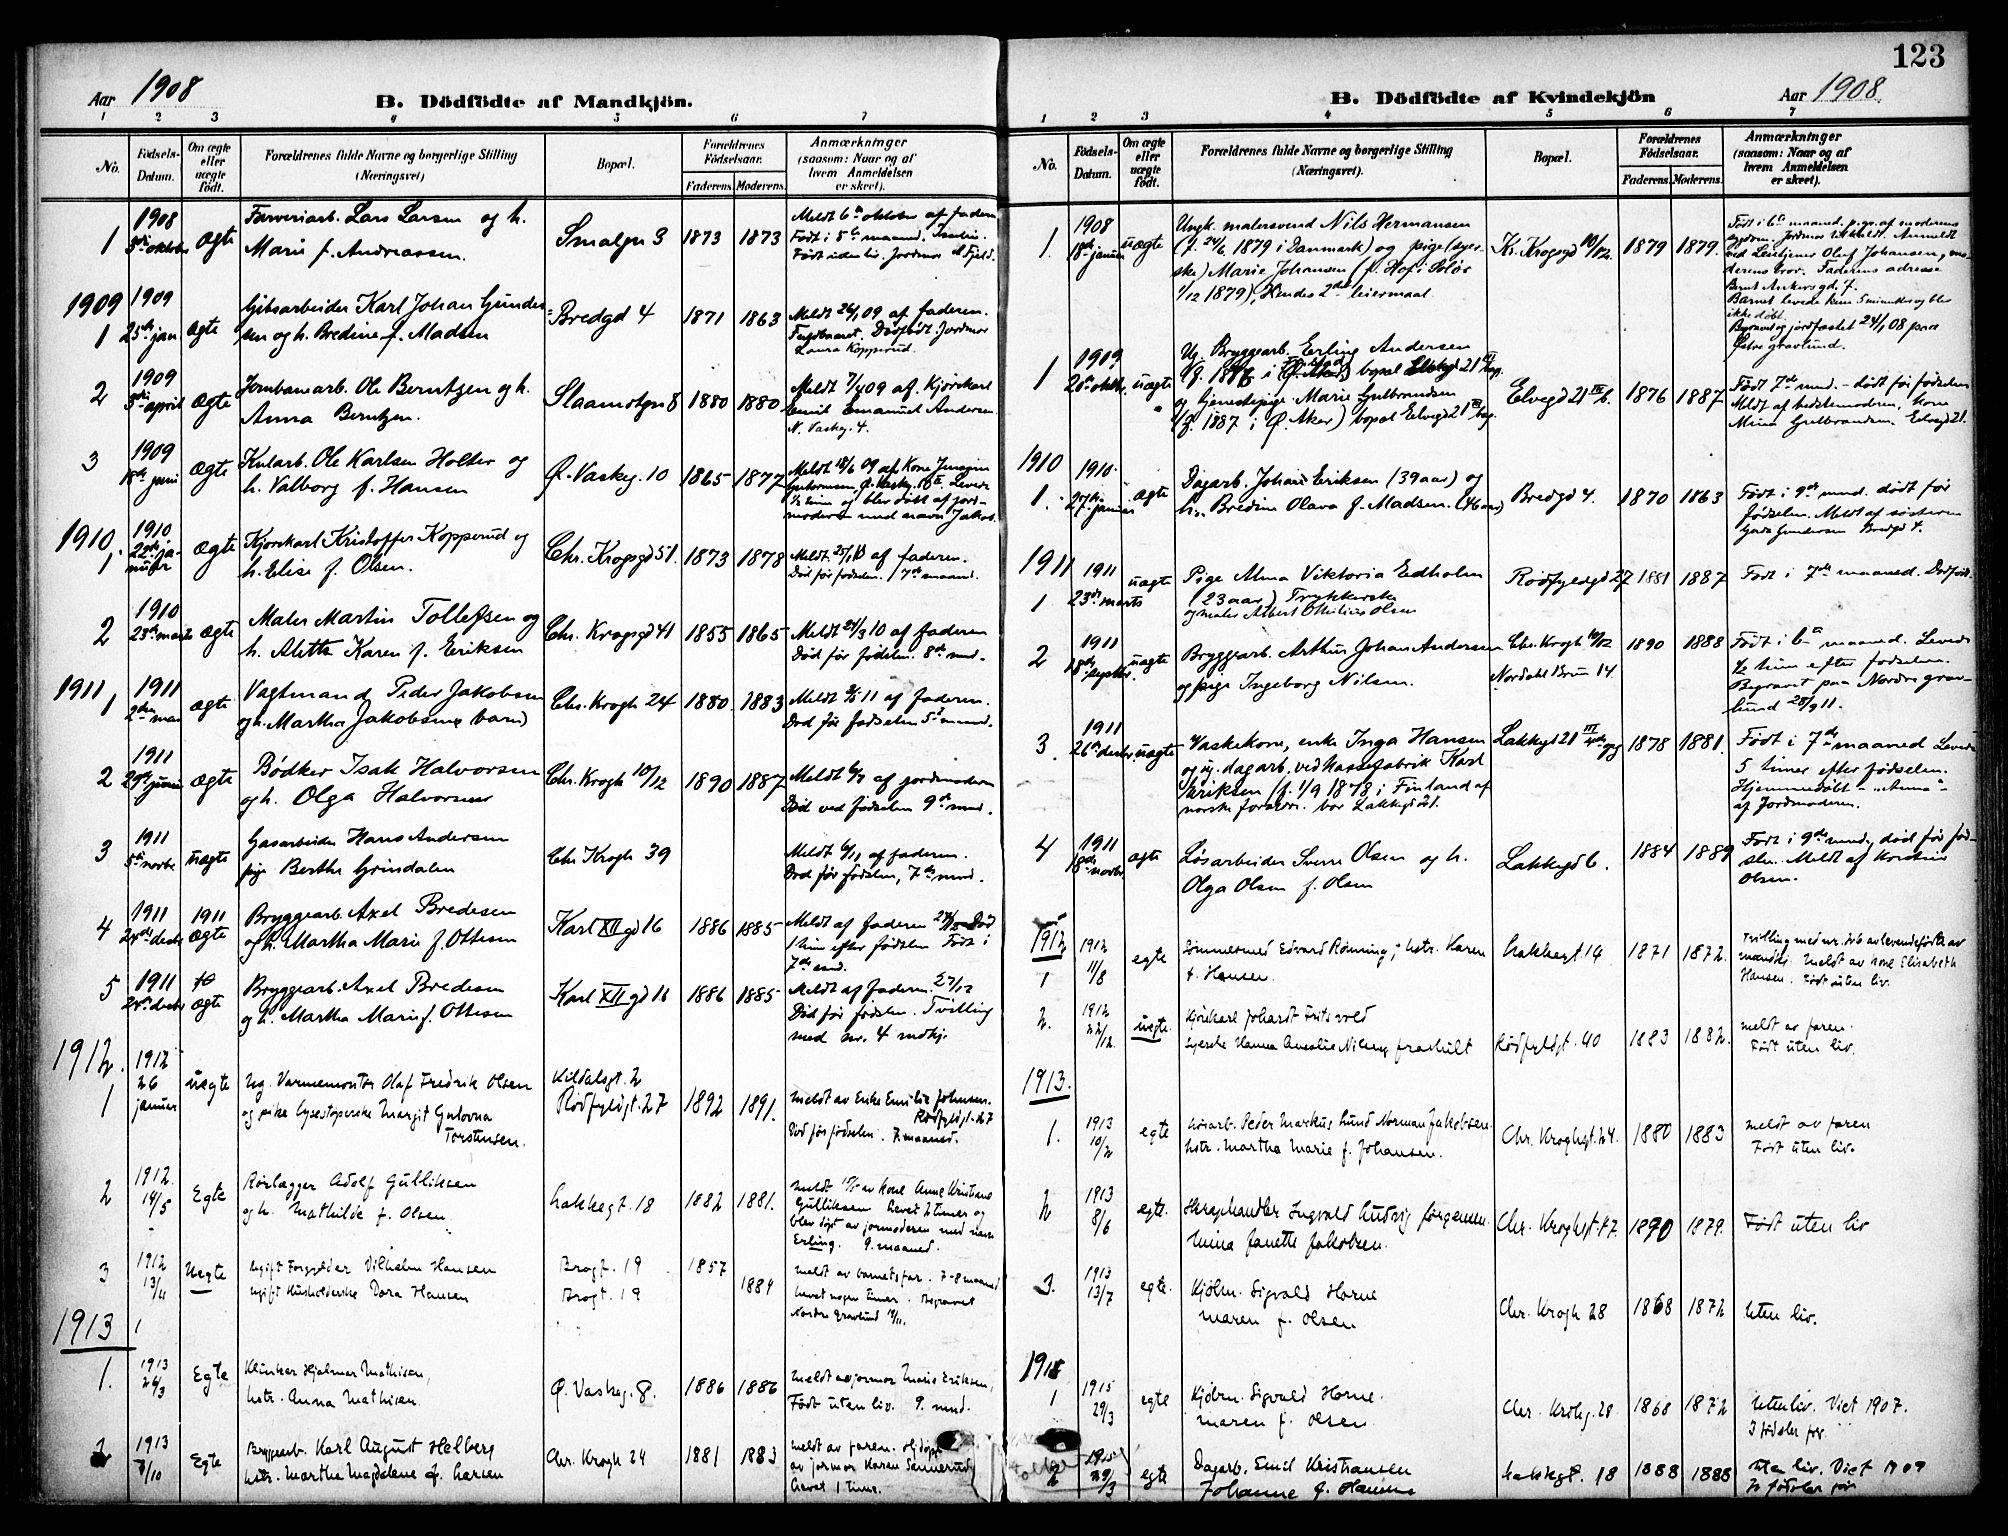 123
Aar 1908
B. Dödfödte af Mandkjön.
1 2 3 4 5 6 7
No.
Födsels-
Datum.
Om ægte
eller
uægte
født.
Forældrenes fulde Navne og borgerlige Stilling
(Næringsvei)
Bopæl.
Forældrenes
Födselsaar.
Faderens. Moderens.
Anmærkninger
(saasom: Naar og af
hvem Anmeldelsen
er skeet).
1 1908 ægte Farveriarb. Lars Larsen og h.
Marie f. Andreassen.
Smalgn 3 1873 1873
Meldt 6te oktober af faderen
Født i 5te maaned.
Født uden liv. Jordmor
1909
1 1909 25de jan ægte
Gibsarbeider Karl Johan Gunder-
sen og h. Bredine f. Madsen
Bredgd 4 1871 1863
Meldt 26/1 09 af faderen.
Dødfødt Jordmor
Laura Kopperud.
2 1909 april ægte
Jernbanearb. Ole Berntzen og h.
Anna Berntzen.
Slaamotgn 8 1880 1880
Meldt 7/4 09 af Kjørekarl
Emil Emanuel Andersen
N. Vaskeg. 4.
3 1909 18de juni ægte
Kularb. Ole Karlsen Holter og
h. Valborg f. Hansen
Ø. Vaskeg. 10 1865 1877
Meldt 18/6 09 af Kone
½ time og blev døbt af jord-
moderen med navn Jakob.
1910
1 1910 22de ja-
nuar ægte
Kjørekarl Kristoffer Kopperud og
h. Elise f. Olsen.
Chr. Krogsgd 51 1873 1878
Meldt 25/1 af faderen.
Død før fødselen. 7de maaned.
2 1910 23de marts ægte
Maler Martin Tollefsen og
h. Alette Karen f. Eriksen
Chr. Krogsgd 41 1855 1865
Meldt 24/3 10 af faderen
Død før fødslen. 8de mnd.
1911
1 1911 2den mai ægte
Vagtmand Peder Jakobsen
og h. Martha Jakobsen
Chr. Krogh 24 1880 1883
Meldt 3/5 11 af faderen.
Død før fødselen 5te maaned.
2 1911 29de juni ægte
Bødker Isak Halvorsen
og h. Olga Halvorsen
Chr. Krogh 10/12 1890 1887
Meldt 6/7 af jordmoderen
Død ved fødselen 9de mnd.
3 1911 5te novbr uægte
Gasarbeider Hans Andersen
pige Berthe Grindalen
Chr Krogh 39
Meldt 6/11 af faderen.
Død før fødselen, 7de mnd.
4 1911 24de decbr 1911 ægte
Bryggearb. Axel Bredesen
og h. Martha Marie f. Ottesen
Karl XII gd 16 1886 1885
Meldt af faderen 27/12 Død
1 time efter fødslen Født i
7de mnd.
5 1911 24de decbr ægte
Bryggearb. Axel Bredesen
og h. Martha Marie f. Ottesen
Karl XII gd 16 1886 1885
Meldt af faderen 27/12
Død før fødslen. Tvilling
med nr. 4 mdkj.
1912.
1 1912 26 januar uægte
Ug. Varmemontør Olaf Fredrik Olsen
og pike lysestøperske Margit Gulovna
Torstensen.
Kildalsgt. 2
Rødfyldgt. 27 1892 1891.
Meldt av Enke Emilie Johnsen.
Rødfyldgt. 27
Død før fødselen. 7. maaned.
2 1912. 14/5 Egte
Rørlægger Adolf Gulliksen
og h. Mathilde f. Olsen.
Lakkegt. 18 1882 1881.
Meldt 15/5 av kone Anne Kristiane
Gulliksen Levet 2 timer og
blev døpt av jormoderen med navn
Erling. 9. maaned.
3 1912 13/11 Uegte
Ugift Forgylder Vilhelm Hansen
Ugift Husholderske Dora Hansen
Brogt. 19 1857
Brogt. 19 1884
Meldt av barnets far. 7-8 maaned
Levet nogen timer. Begravet
Nordre Gravlund 18/11.
1913
1. 1913 24/3 Egte
Klinker Hjalmar Mathisen,
hstr. Anna Mathisen.
Ø. Vaskeg. 8. 1886 1886
Meldt av jormor Marie Eriksen,
Født uten liv. 9. mnd.
2 1913 7/10 Egte
Bryggearb. Karl August Helberg
hstr. Martha Magdalene f. Larsen
Chr. Krogh 24 1881 1883
Meldt av faren. Hj.døpt
av jormor Karen Sannerud
Levet 1 time.
B. Dödfödte af Kvindekjön
Aar 1908.
1 2 3 4 5 6 7
No.
Födsels-
Datum.
Om ægte
eller
uægte
født.
Forældrenes fulde Navne og borgerlige Stilling
(Næringsvei).
Bopæl.
Forældrenes
Födselsaar.
Faderens. Moderens.
Anmærkninger
(saasom: Naar og af
hvem Anmeldelsen
er skeet).
1. 1908 18de januar uægte
Ungk. malersvend Nils Hermansen
(f. 24/6 1879 i Danmark) og pige (syer-
ske) Marie Johansen (f. Hof i Solør
1/12 1879), Hendes 2det leiermaal.
Kr. Krogsgd 10/12. 1879 1879.
Født i 6te maaned, pga. af moderens
sygdom. Jordmor tilkaldt. Anmeldt
ved Olaf Johansen, mo-
derens bror. Faderens adresse
Bernt Ankersgd. 7.
Barnet levede kun 5 minuter og blev
ikke døbt.
Begravet og jordfæstet 24/1 08 paa
Østre gravlund.
1 1909 26de oktbr. uægte
Ug. Bryggearb. Erling Andersen
bopæl Elvegd 21 III
og tjenestepige Marie Gulbrandsen
(f. 1887 i Ø. Aker) bopæl Elvegd 21
Elvegd 21 III b. 1876 1887
Født 7de mnd. – død før fødselen
Meldt af bedstemoderen, kone
Mina Gulbrandsen, Elvegd 21.
1910
1. 1910. 27de januar ægte
Dagarb. Johan Eriksen (39 aar) og
h. Bredine Olava f. Madsen. (46 aar)
Bredgd 4. 1870 1863
Født i 9de mnd. død før
fødselen. Meldt af søsteren
Gundersen Bredgd 4.
1911
1 1911 23de marts uægte
Pige Alma Viktoria Edholm
(23 aar) Trykkerske
og maler Albert Othilius Olsen
Rødfyldgd 27 1881 1887
Født i 7de maaned. Dødfødt.
2 1911 septbr. uægte
Bryggearb. Arthur Johan Andersen
og pige Ingeborg Nilsen.
Chr. Krogh 10/12
Nordahl Brun 14. 1890 1888
Født i 6te maaned. Levede
½ time efter fødselen.
Begravet paa Nordre grav-
lund 28/9 11.
3. 1911 26de decbr. uægte
Vaskekone, enke Inga Hansen
og ug. dagarb. ved Karl
Eriksen (f. 1/9 1878 i Finland af
norske forældre. bor Lakkegd 21.
Lakkegd 21 III 1878 1881.
Født i 7de maaned Levede
5 timer efter fødselen.
Hjemmedøbt – "Anna" –
af Jordmoderen.
4 1911 18de novbr ægte
Løsarbeider Sverre Olsen og h.
Olga Olsen f. Olsen
Lakkegd 6. 1884 1889
Født i 9de mnd, død før fød-
slen. Meldt af Kristine
Olsen.
1912
1 1912 11/8 egte
Tømmermed Edvard Rønning, hstr. Karen
f. Hansen.
Lakkegt. 14 1871 1872.
Tvilling med nr. 26 av levendefødte av
mandkj. Meldt av kone Elisabeth
Hansen. Født uten liv.
2. 1912 22/12. uegte
Kjørekarl Johardt Fritsvold
Syerske Hanna Amalie Nilsen fraskilt
Rødfyldgt. 40 1883 1882.
Meldt av faren.
Født uten liv.
1913.
1. 1913 10/2 egte
Løsarb. Peder Markus Lund Norman Jakobsen
hstr. Martha Marie f. Johansen.
Chr. Kroghgt. 24. 1880 1883
Meldt av faren
Født uten liv.
2 1913 8/6 egte.
Skraphandler Ingvald Ludvig Jørgensen.
Mina Janette Jakobsen.
Chr. Kroghgt. 47. 1870 1879.
Født uten liv
3. 1913 13/7 egte.
Kjøbm. Sigvald Horne
Maren f. Olsen
Chr. Krogh 28 1868 1872
Uten liv.
1915
1 1915 29/3 egte
Kjøbm. Sigvald Horne.
Maren f. Olsen
Chr. Krohg. 28 1868 1872
Uten liv. Viet 1907.
3 fødsler før.
2 1915 29/3 egte
Dagarb. Emil Kristiansen
Johanne f. Hansen
Lakkegt. 18 1888 1888
Uten liv. Viet 1909
2 fødsler før